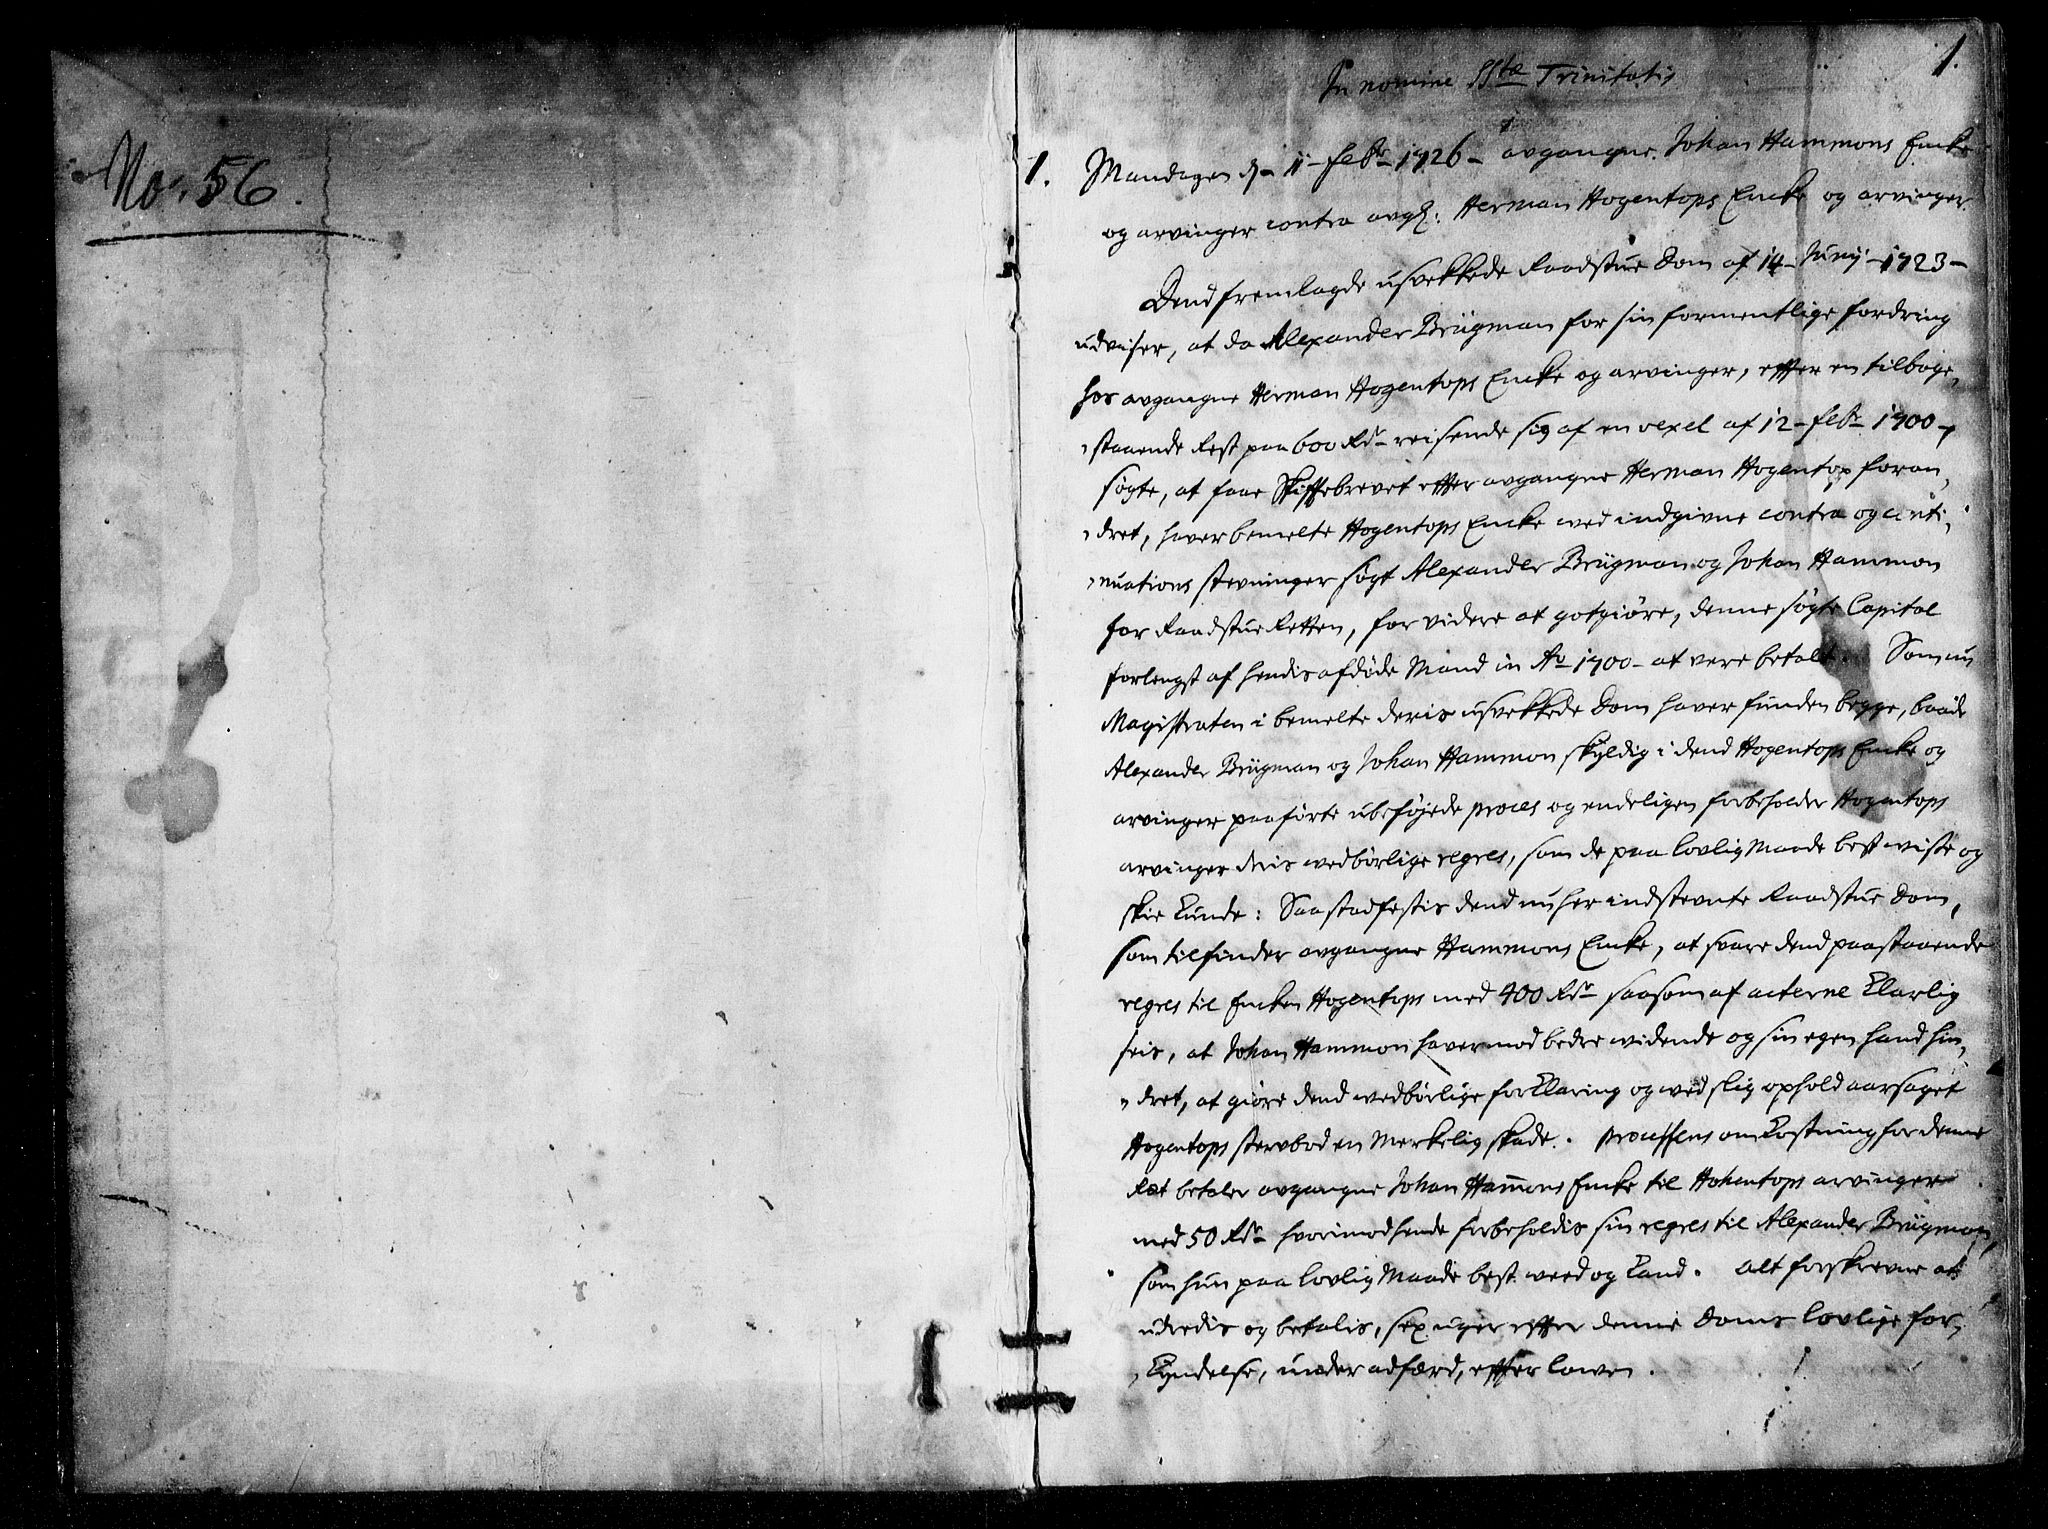 No. 56.
1.
In nomine SStæ Trinitatis
1. Mandagen d. 11 Febr. 1726 avgangne Johan Hammons Encke
og arvinger contra avg: Herman Hogentops Encke og arvinger
Dend fremlagde usvekkede Raadstue Dom af 14 Junij 1723
udviser, at da Alexander Brügman for sin formentlige fordring
hos avgangne Herman Hogentops Encke og arvinger, effter en tilbage,
,staaende Rest paa 600 Rdr reisende sig af en vexel af 12 Febr 1700,
søgte, at faae Skifftebrevet effter avgangne Herman Hogentop foran,
,dret, haver bemelte Hogentops Encke wed indgivne contra og conti,
,nuations stevninger søgt Alexander Brügman og Johan Hammon
for RaadstueRetten, for videre at gotgiøre, denne søgte Capital
forlengst af hendis afdøde Mand in Ao 1700 at vere betalt. Som nu
Magistraten i bemelte deris usvekkede Dom haver funden begge, baade
Alexander Brügman og Johan Hammon skyldig i dend Hogentops Encke og
arvinger paaførte ubeføjede proces og endeligen forbeholder Hogentops
arvinger deris wedbørlige regres, som de paa lovlig Maade best wiste og
skie kunde: Saa stadfestis dend nu her indstevnte Raadstue Dom,
som tilfinder avgangne Hammons Encke, at svare dend paastaaende
regres til Encken Hogentops med 400 Rdr saasom af acterne klarlig
seis, at Johan Hammon haver mod bedre widende og sin egen hand hin,
,dret, at giøre dend wedbørlige forklaring og wed slig ophold aarsaget
Hogentops stervbod en Merkelig skade. Processens omkostning for denne
Ræt betaler avgangne Johan Hammons Encke til Hohentops arvinger
med 50 Rdr hvorimod hende forbeholdis sin regres til Alexander Brügman,
som hun paa lovlig Maade best weed og kand. Alt forskrevne at
udredis og betalis, sex uger effter denne Doms lovlige for,
,kyndelse, under adfærd, effter lowen.